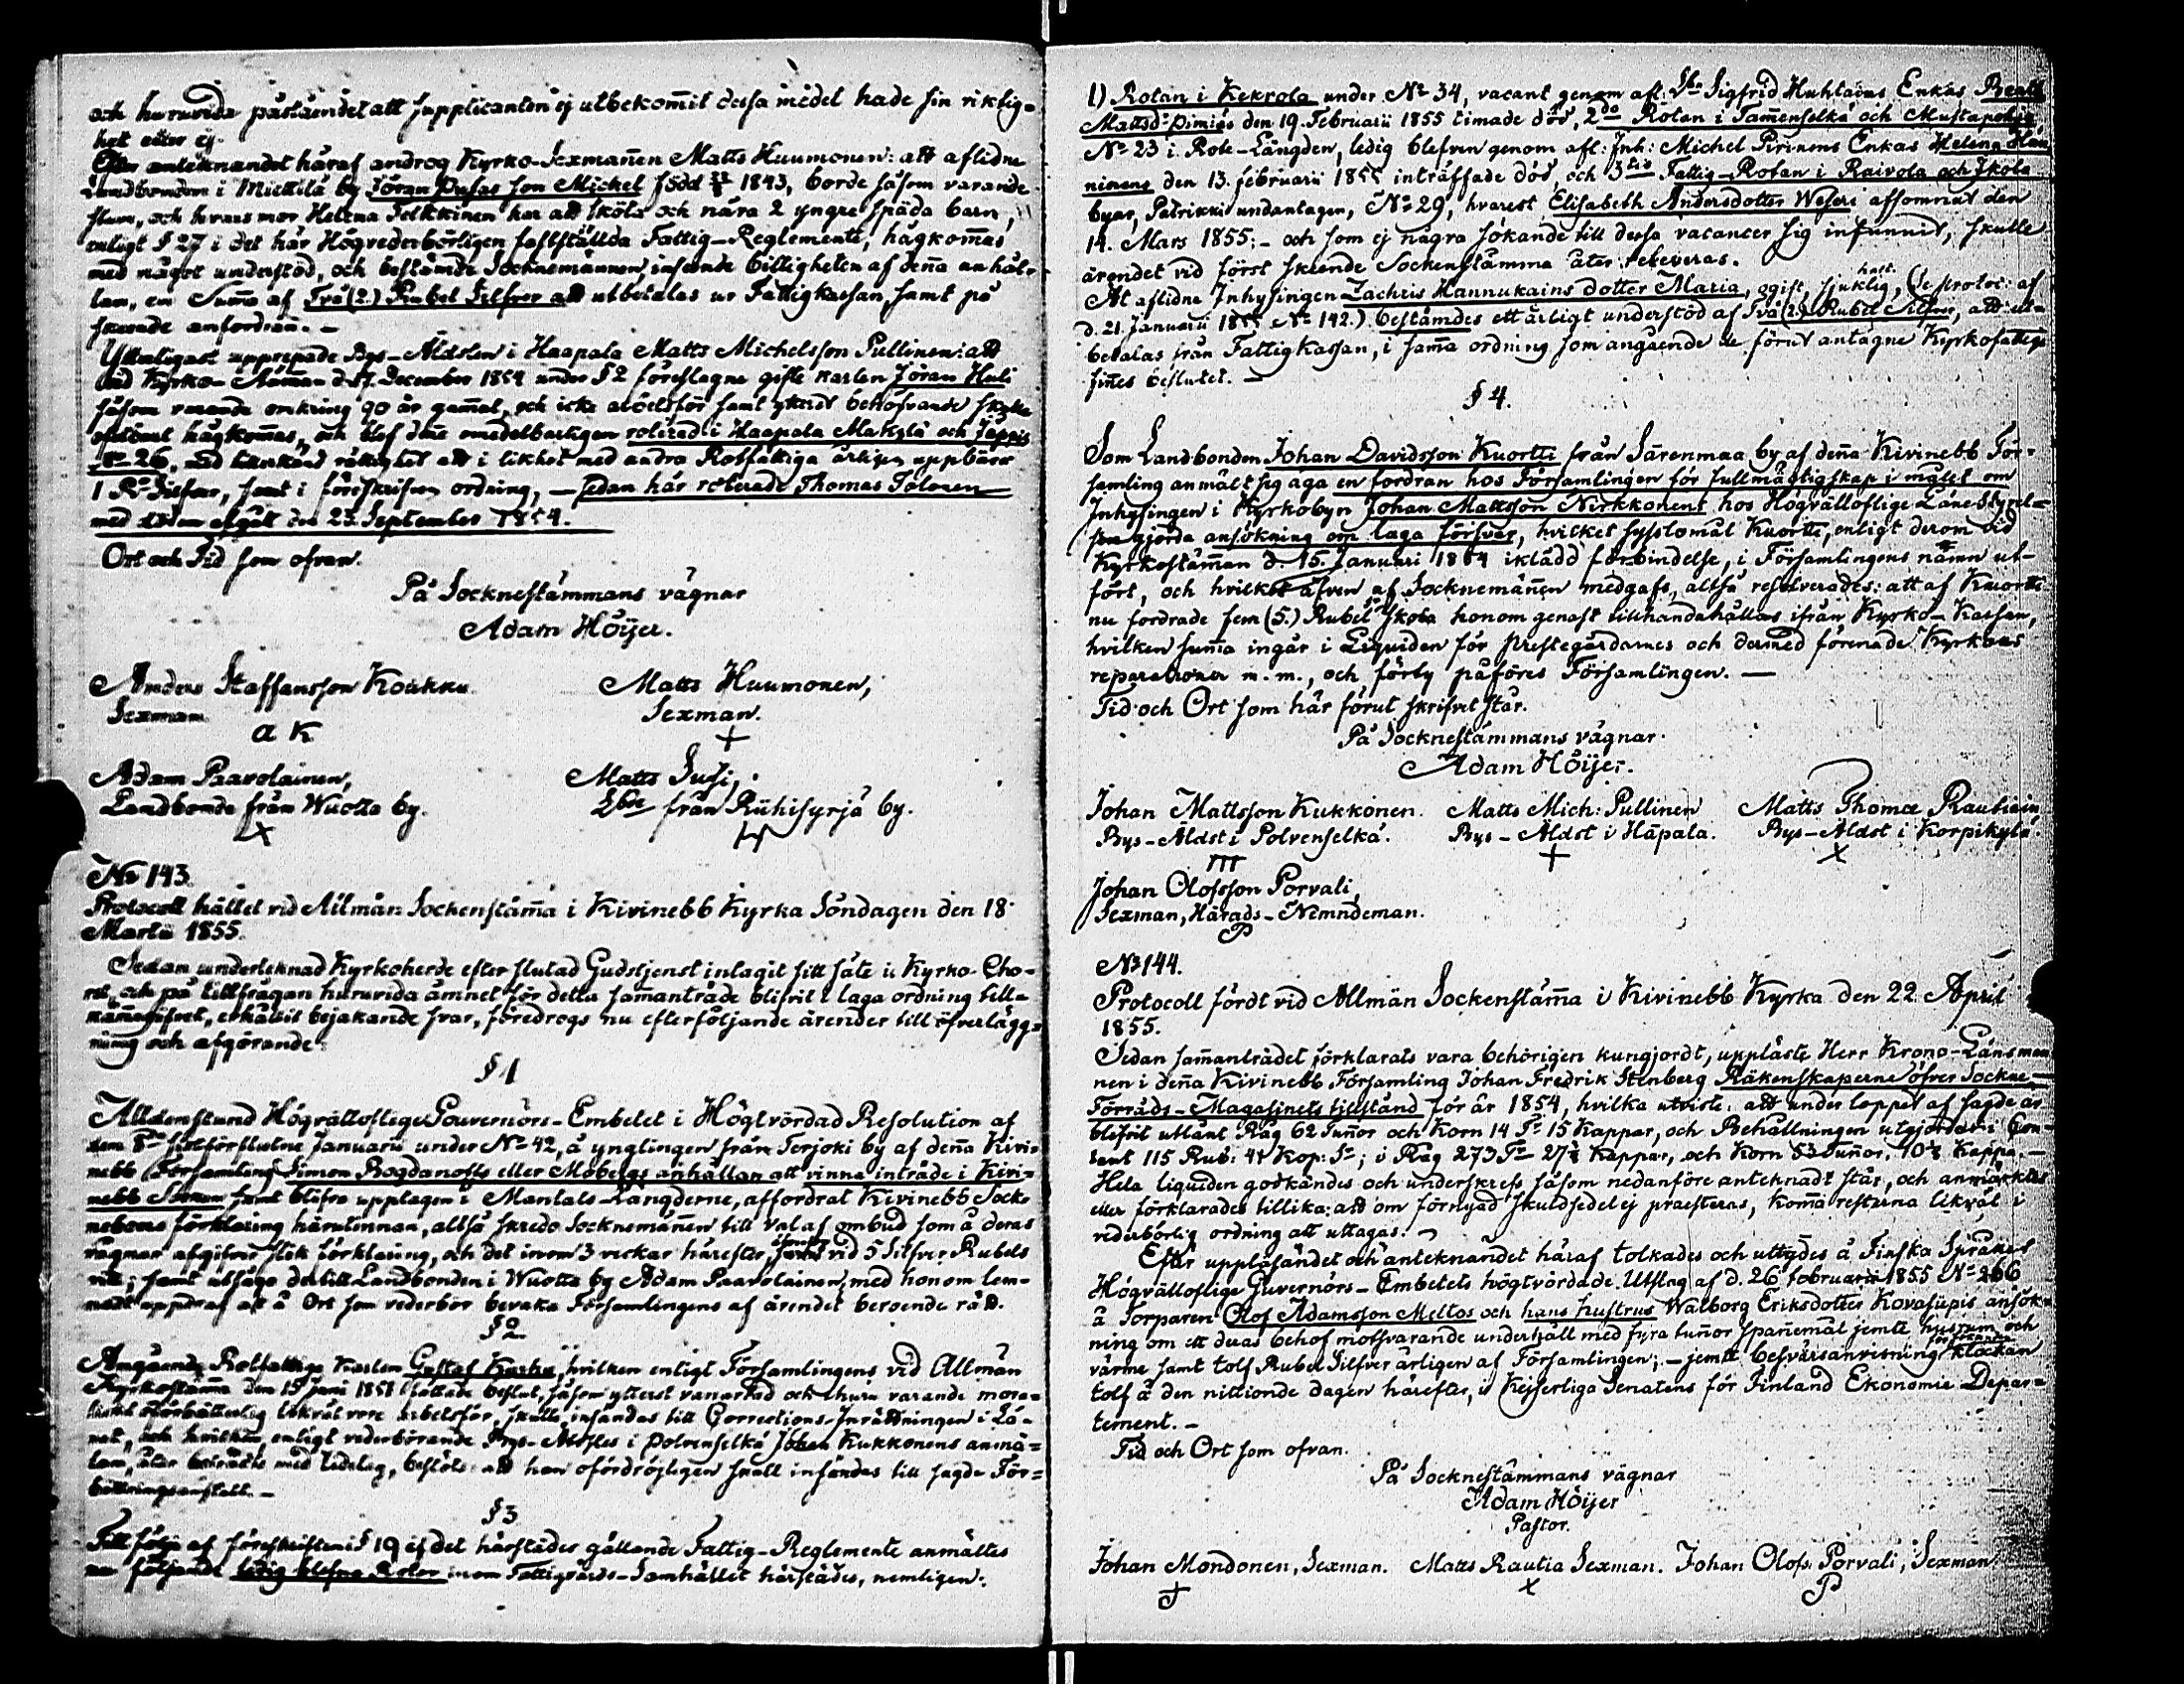 och huruvida påståendet att supplicanten ej utbekom̄it dessa medel hade sin riktig=
het eller ej.
Efter antecknandet häraf androg Kyrko-Sexman̄en Matts Huumonen: att aflidne
Landbonden i Miettilä by Jöran Pusas son Michel född 1843, borde såsom varande
stum, och hvars mor Helena Telkkinen har att sköta och nära 2 yngre späda barn,
enligt § 27 i det här Högvederbörligen fastställda Fattig-Reglemente, hågkom̄as
med något understöd, och bestämde Socknemännen, inseende billigheten af den̄a anhål-
lan, en Sum̄a af Två (2.) Rubel Silfver att utbetalas ur Fattigkassan samt på
skeende anfordran. –
Ytterligare upprepade Bys-Äldsten i Haapala Matts Michelsson Pullinen: att
vid Kyrko-Stäman d. 17. December 1854 under § 2 föreslagne gifte karlen Jöran Huli
såsom varande omkring 90 år gam̄al, och icke arbetsför samt ytterst behöfvande skulle
ofelbart hågkom̄as, och blef den̄e omedelbarligen roterad i Haapala Matzlä och Jäppis
N° 26, med tillerkänd rättighet att i likhet med andra Rotfattiga årligen uppbära
1 R° Silfver, samt i föreskrifven ordning, – sedan här roterade Thomas Tolonen
med döden afgåt den 23. September 1854.
Ort och Tid som ofvan.
På Socknestämmans vägnar
Adam Höijer.
Anders Staffansson Koukku Matts Huumonen,
Sexman Sexman.
A K +
Adam Paavolainen, Matts Susi,
Landbonde från Wuotta by. Lbde från Riihisyrjä by.
X
N° 143.
Protocoll hållet vid Allmän Sockenstäm̄a i Kivinebb Kyrka Söndagen den 18
Martii 1855.
Sedan undertecknad Kyrkoherde efter slutad Gudstjenst intagit sitt säte i Kyrko-Cho-
ret, och på tillfrågan huruvida ämnet för detta sam̄anträde blifvit i laga ordning till-
kännagifvet, erhållit bejakande svar, föredrogs nu efterföljande ärender till öfverlägg=
ning och afgörande:
§ 1
Alldenstund Högvälloflige Gouvernörs-Embetet i Högtvördad Resolution af
den 8de sistförflutne Januarii under N° 42, å ynglingen från Terjoki by af den̄a Kivi-
nebb Församling Simon Bogdanoffs eller Mobergs anhållan att vinna inträde i Kivi-
nebb Socken samt blifva upptagen i Mantals-Längderne, affordrat Kivinebb Socke-
neboers förklaring härutinnan, altså skredo Socknemän̄en till val af ombud som å deras
vägnar afgifver slik förklaring, och det inom 3 veckar härefter, vid 5 Silfver Rubels
vite; samt utsågo dertill Landbonden i Wuotta by Adam Paavolainen, med honom lem-
nadt uppdrag att å Ort som vederbör bevaka Församlingens af ärendet beroende rätt.
§ 2.
Angående Rotfattige Karlen Gustaf Karhu, hvilken enligt Församlingens vid Allmän
Kyrkostäm̄a den 15 Juni 1851 fattade beslut, såsom ytterst vanartad och ehuru varande mora-
liskt oförbätterlig likväl vore arbetsför, skulle insändas till Corrections-Inrättningen i Lä-
net, och hvilken, enligt vederbörande Bys-Äldstes i Polvenselkä Johan Kukkonens anmä=
lan, åter beträdts med tidelag, beslöts: att han ofördröjligen skall insändas till sagde För=
bättringsanstalt. –
§ 3
Till följe af föreskriften i § 19 af det härstädes gällande Fattig-Reglemente anmältes
nu följande ledig blefne Rotor inom Fattigvårds-Samhället härstädes, nemligen:
1) Rotan i Kekrola under N° 34, vacant genom afl: Sigfrid Huhtains Enkas Beata
Mattsd: Pimiäs den 19. Februarii 1855 timade död, 2do Rotan i Tam̄enselkä och Mustapohja
N° 23 i Rote-Längden, ledig blefven genom afl: Inh: Michel Pirinens Enkas Helena Hän-
ninens den 13. februarii 1855 inträffade död, och 3tio Fattig-Rotan i Raivola och Ikola
byar, Patrikki undantagen, N° 29, hvarest Elisabeth Andersdotter Weseri afsomnat den
14. Mars 1855; – och som ej några sökande till dessa vacancer sig infunnit, skulle
ärendet vid först skeende Sockenstämma åter releveras.
At aflidne Inhysingen Zachris Hannukains dotter Maria, ogift, sjuklig, (se protoc: af
d. 21. Januarii 1855 N° 142.) bestämdes ett årligt understöd af Två (2.) Rubel Silfver, att ut-
betalas från Fattigkassan, i sam̄a ordning som angående de förut antagne Kyrkofattige
fin̄es beslutet. –
§ 4.
Som Landbonden Johan Davidsson Kuortti från Särenmaa by af den̄a Kivinebb För-
samling anmält sig äga en fordran hos Församlingen för fullmägtigskap i målet om
Inhysingen i Kyrkobyn Johan Mattsson Nirkkonens hos Högvällofliga Läne-Styrel-
sen gjorda ansökning om laga försvar, hvilket sysslomål Kuortti, enligt derom vid
Kyrkostäm̄an d. 15. Januari 1854 iklädd förbindelse, i Församlingens nämn ut-
fört, och hvilket äfven af Socknemän̄en medgafs, altså resolverades: att af Kuortti
nu fordrade fem (5.) Rubel skola honom genast tillhandahållas ifrån Kyrko-Kassan,
hvilken sum̄a ingår i Liquiden för prestegårdarnes och dermed förenade Kyrkans
reparationer m. m., och förty påföres Församlingen. –
Tid och Ort som här förut skrifvet står.
På Socknestämmans vägnar
Adam Höijer.
Johan Mattsson Kukkonen. Matts Mich: Pullinen Matts Thomæ Rautiain
Bys-Äldst i Polvenselkä. Bys-Äldst i Hapala. Bys-Äldst i Korpikylä.
m + X
Johan Olofsson Porvali,
Sexman, Härads-Nemndeman.
P
N° 144.
Protocoll fördt vid Allmän Sockenstäm̄a i Kivinebb Kyrka den 22 April
1855.
Sedan sam̄anträdet förklarats vara behörigen kungjordt, uppläste Herr Krono-Länsman
nen i den̄a Kivinebb Församling Johan Fredrik Stenberg Räkenskaperne öfver Sockne-
Förråds-Magasinets tillstånd för år 1854, hvilka utviste: att under loppet af sagde år
blifvit utlånt Råg 62 Tun̄or och Korn 14 T° 15 Kappar, och Behållningen utgjordes i Con-
tant 115 Rub: 44 Kop: S°; i Råg 273 T° 27½ Kappar, och Korn 83 Tun̄or, 10½ Kappa. –
Hela liquiden godkändes och underskrefs såsom nedanföre antecknadt står, och anmärktes
eller förklarades tillika: att om förnyad skuldsedel ej praesteras, kom̄a resterna likväl i
vederbörlig ordning att uttagas. –
Efter uppläsandet och antecknandet häraf tolkades och uttydes å Finska Språket
Högvällofliga Guvernörs-Embetets högtvördade Utslag af d. 26 februarii 1855 N° 266
å Torparen Olof Adamsson Meltos och hans hustrus Walborg Eriksdotter Kovasiipis ansök-
ning om ett deras behof motsvarande underhåll med fyra tun̄or span̄emål jemte husrum och
värme samt tolf Rubel Silfver årligen af Församlingen; – jemte besvärsanvisning klockan
tolf å den nittionde dagen härefter, i Kejserliga Senatens för Finland Ekonomie Depar=
tement. –
Tid och Ort som ofvan.
På Socknestämmans vägnar
Adam Höijer
Pastor.
Johan Mondonen, Sexman. Matts Rautia Sexman. Johan Olofs: Porvali, Sexman
+ X P